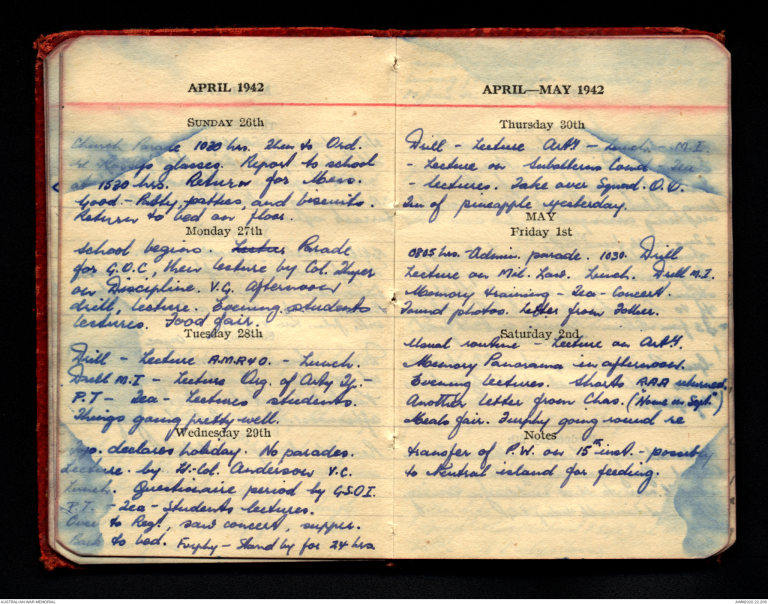 APRIL 1942
SUNDAY 26th
Church Parade 1030 hrs. Then to Ord.
glasses. Report to school
at 1530 hrs. Return for Mess.
Good - Patty, pasties, and biscuits.
Return to bed on floor.
Monday 27th
School begins. Parade
for G.O.C., then lecture by Col. Thyer
on Discipline. V.G. Afternoon
drill, lecture. Evening students
lectures. Food fair.
Tuesday 28th
Drill - Lecture A.M.R.&O. - Lunch.
Drill M.I - Lecture Org. of Arty -
P.T - Tea - Lectures students.
Things going pretty well.
Wednesday 29th
declares holiday. No parades.
Lecture. by Lt-Col. Anderson V.C.
Lunch. Questionaire period by GSOI.
P.T. - Tea - Students lectures.
Over to Regt, saw concert, supper.
Back to bed. Furphy - Stand by for 24 hrs.
APRIL—MAY 1942
Thursday 30th
Drill - Lecture Arty - Lunch - M.I.
- Lecture on Subalterns Comd - Tea -
- lectures. Take over Squad. O.O.
Tin of pineapple yesterday.
MAY
Friday 1st
0805 hrs. - Admin. parade. 1030. Drill
Lecture on Mil. Law. Lunch. Drill M.I.
Memory training - Tea - Concert.
Found photos. Letter from Father.
Saturday 2nd
Usual routine - Lecture on Arty.
Memory Panorama in afternoon.
Evening lectures. Shorts returned.
Another letter from Chas. ("Home in Sept.")
Meals fair. Furphy going round re
Notes
transfer of P.W. on 15th inst. - possibly
to Neutral island for feeding.
AUSTRALIAN WAR MEMORIAL